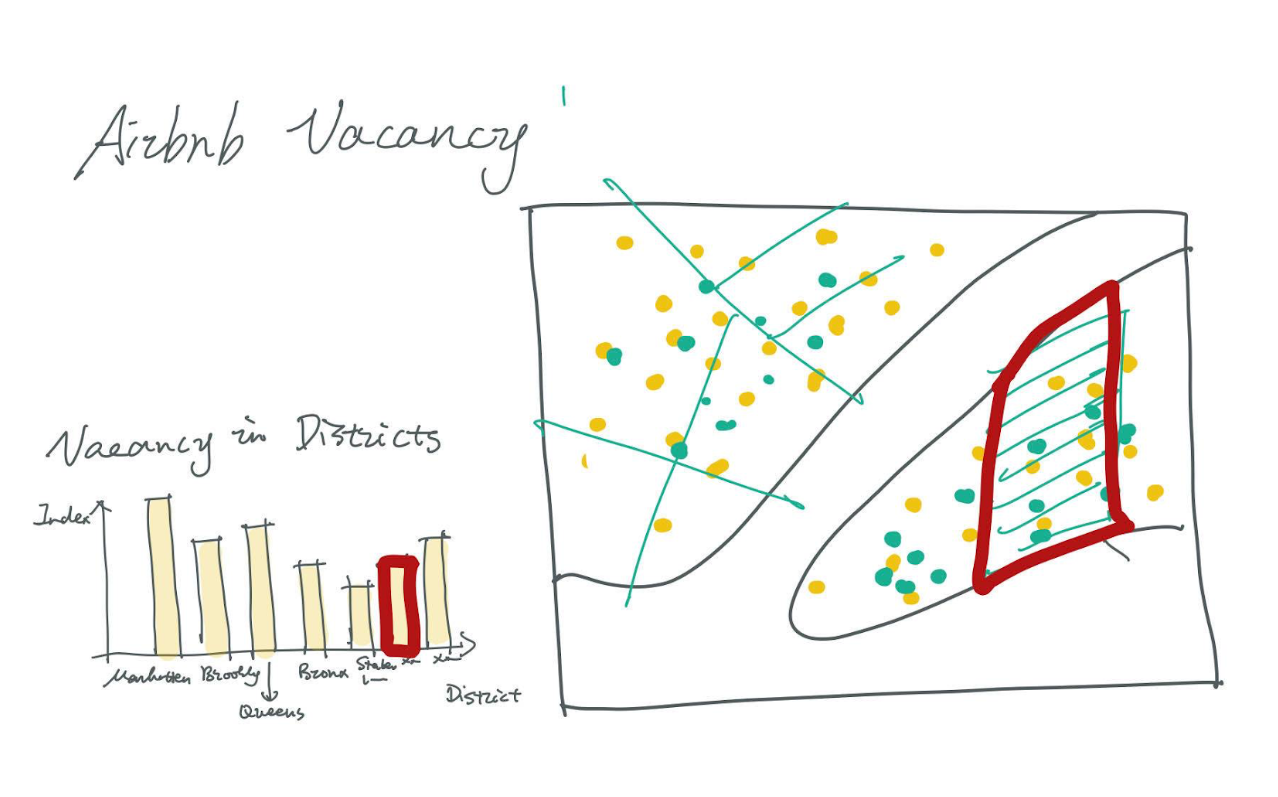 Airbnb Vacancy
Vacancy in Districts
Index
Manhatten Brookly Bronx Staten
Queens
District